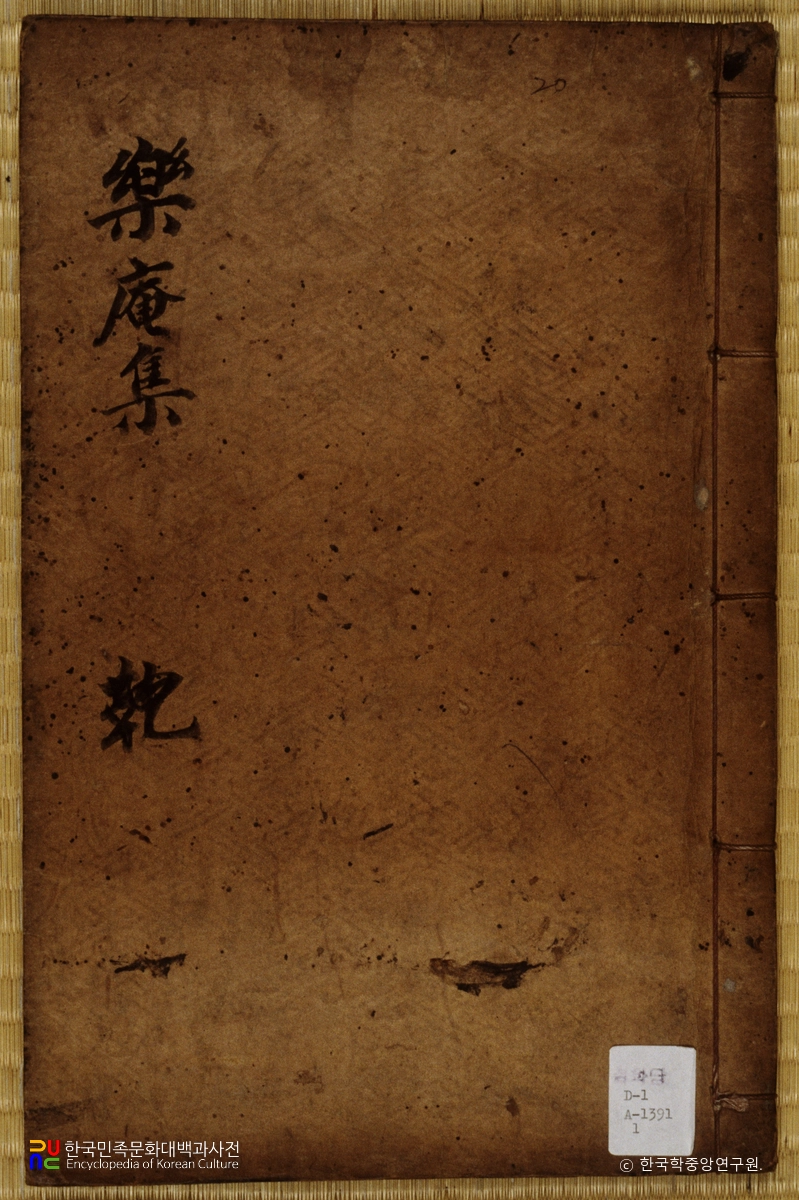 20
樂庵集
乾
D-1
A-1391
1
한국민족문화대백과사전
Encyclopedia of Korean Culture
© 한국학중앙연구원.